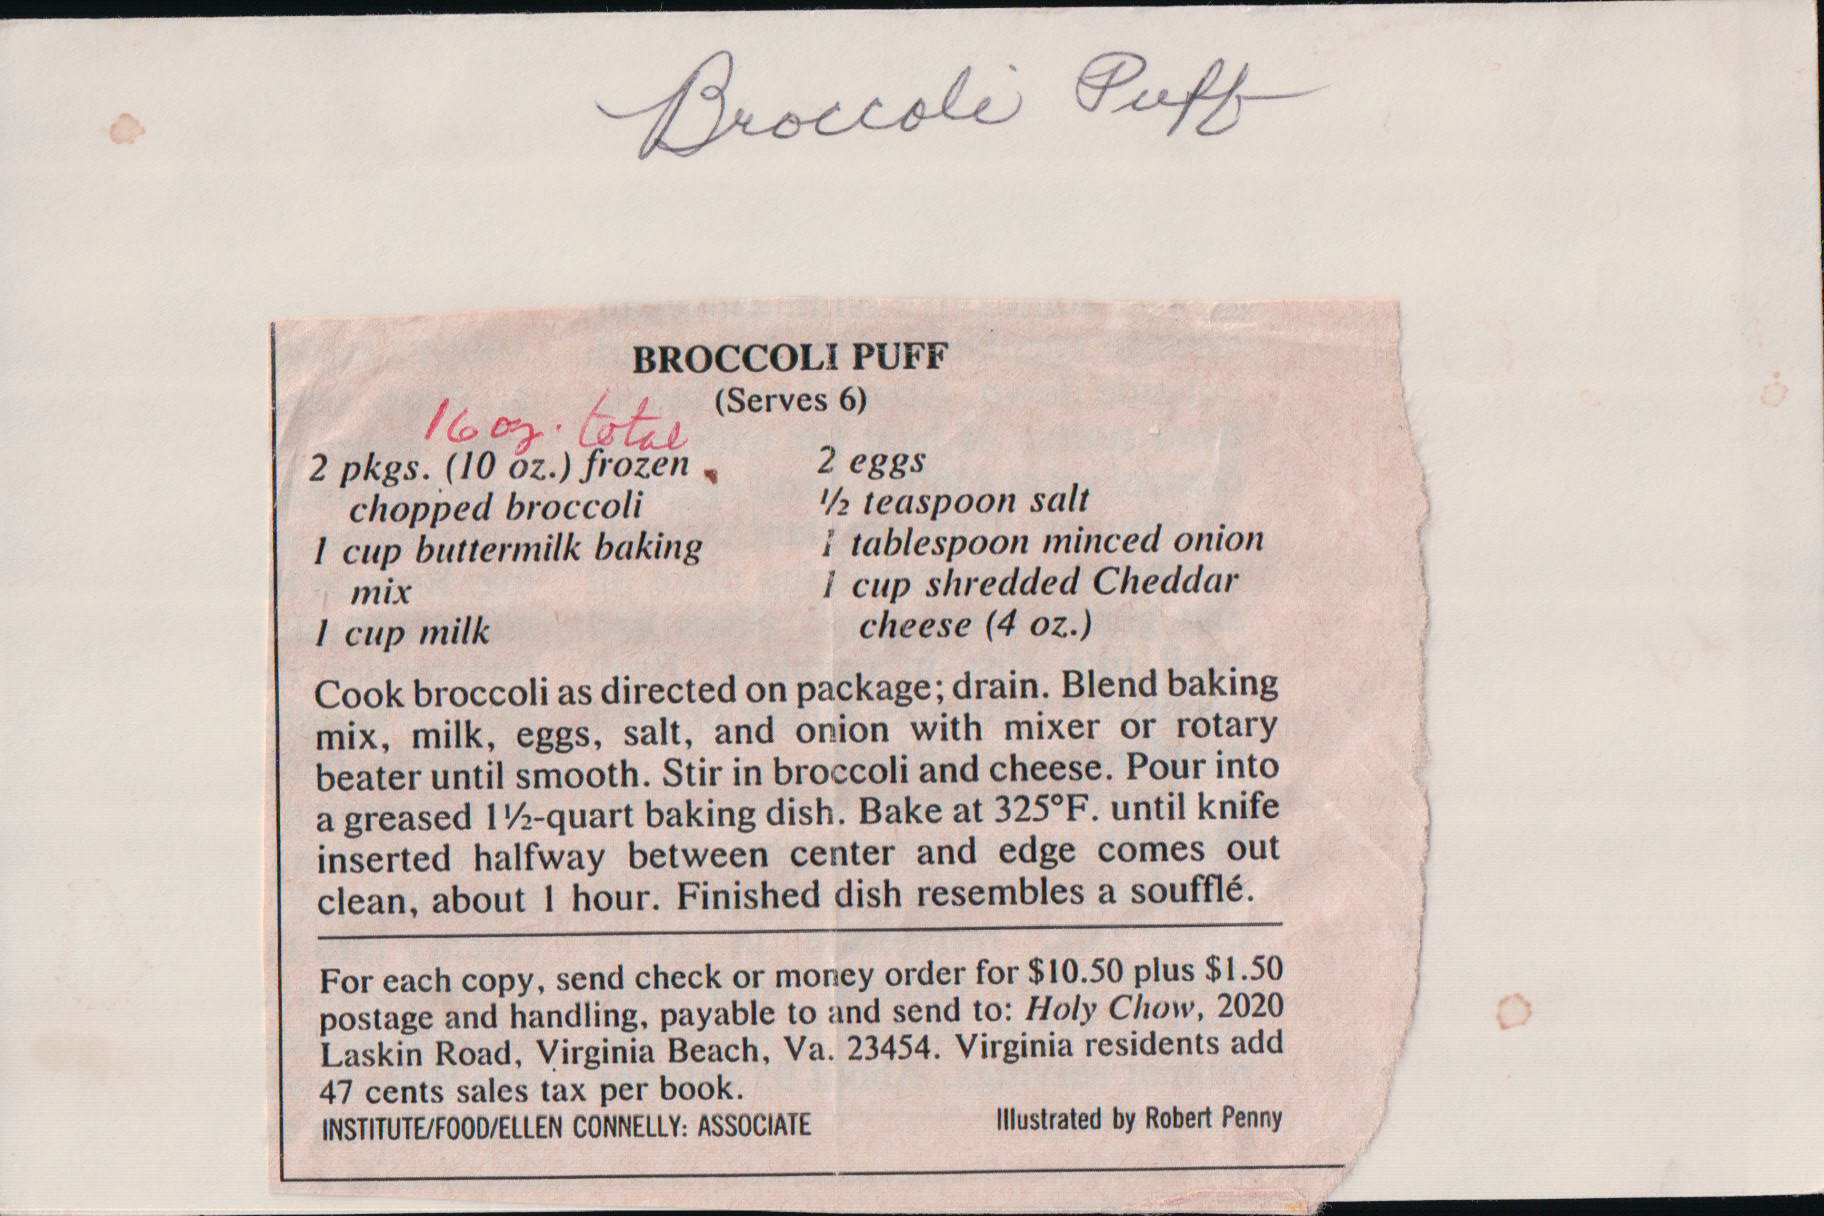 Broccoli Puff
BROCCOLI PUFF
(Serves 6)
16 oz. total
2 pkgs. (10 oz.) frozen
chopped broccoli
1 cup buttermilk baking
mix
1 cup milk
2 eggs
½ teaspoon salt
1 tablespoon minced onion
1 cup shredded Cheddar
cheese (4 oz.)
Cook broccoli as directed on package; drain. Blend baking
mix, milk, eggs, salt, and onion with mixer or rotary
beater until smooth. Stir in broccoli and cheese. Pour into
a greased 1½-quart baking dish. Bake at 325°F. until knife
inserted halfway between center and edge comes out
clean, about 1 hour. Finished dish resembles a soufflé.
For each copy, send check or money order for $10.50 plus $1.50
postage and handling, payable to and send to: Holy Chow, 2020
Laskin Road, Virginia Beach, Va. 23454. Virginia residents add
47 cents sales tax per book.
INSTITUTE/FOOD/ELLEN CONNELLY: ASSOCIATE
Illustrated by Robert Penny